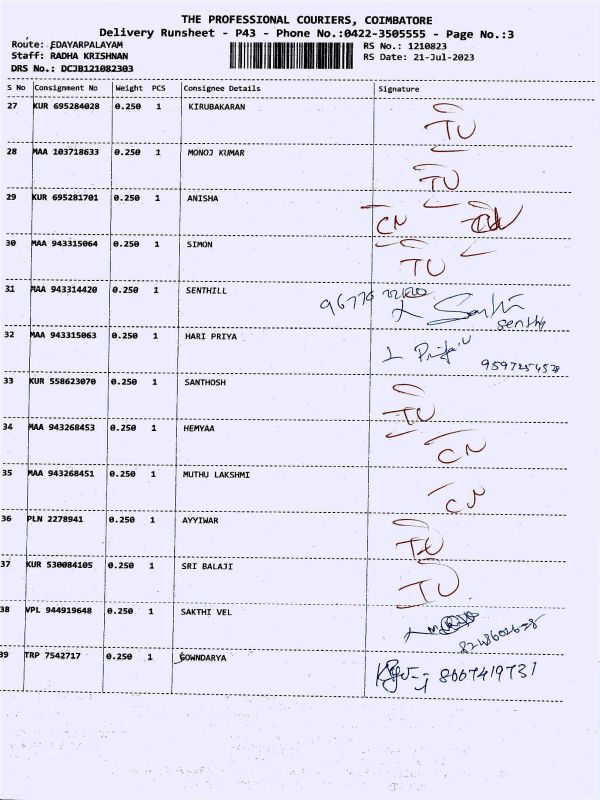 THE PROFESSIONAL COURIERS, COIMBATORE
Delivery Runsheet - P43 - Phone No.:0422-3505555 - Page No.:3
Route: EDAYARPALAYAM RS No.: 1210823
Staff: RADHA KRISHNAN RS Date: 21-Jul-2023
DRS No.: DCJB121082303
S No Consignment No Weight PCS Consignee Details Signature
27 KUR 695284028 0.250 1 KIRUBAKARAN TU
28 MAA 103718633 0.250 1 MONOJ KUMAR TU
29 KUR 695281701 0.250 1 ANISHA CN
30 MAA 943315064 0.250 1 SIMON TU
31 MAA 943314420 0.250 1 SENTHILL
32 MAA 943315063 0.250 1 HARI PRIYA
33 KUR 558623070 0.250 1 SANTHOSH TU
34 MAA 943268453 0.250 1 HEMYAA CN
35 MAA 943268451 0.250 1 MUTHU LAKSHMI CN
36 PLN 2278941 0.250 1 AYYIWAR
37 KUR 530084105 0.250 1 SRI BALAJI TU
38 VPL 944919648 0.250 1 SAKTHI VEL
39 TRP 7542717 0.250 1 GOWNDARYA 8667419731